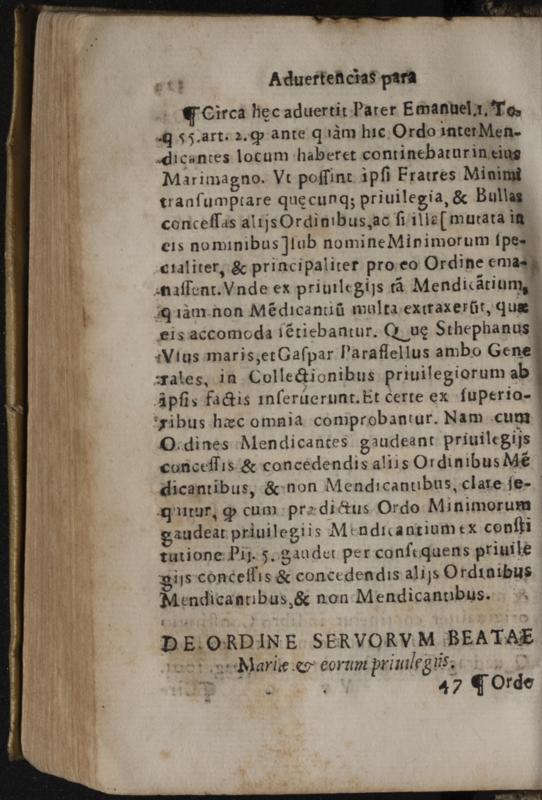 Aduertencias para
¶ Circa hęc aduertit Pater Emanuel.1. To.
q 55.art. 2. ꝙ ante q iàm hic Ordo inter Men-
dicantes locum haberet continebatur in eius
Marimagno. Vt possint ipsi Fratres Minimi
transumptare quęcunq; priuilegia, & Bullas
concessas alijs Ordinibus, ac si illæ[mutata in
eis nominibus]sub nomine Minimorum spe-
cialiter, & principaliter pro eo Ordine ema-
nassent. Vnde ex priuilegijs tā Mendicātium,
q iàm non Mēdicantiū multa extraxerūt, quæ
eis accomoda sētiebantur. Quę Sthephanus
Vsus maris, et Gaspar Parasfellus ambo Gene
rales, in Collectionibus priuilegiorum ab
ipsis factis inseruerunt. Et certe ex superio-
ribus hæc omnia comprobantur. Nam cum
Ordines Mendicantes gaudeant priuilegijs
concessis & concedendis aliis Ordinibus Mē
dicantibus, & non Mendicantibus, clare se-
quitur, ꝙ cum prædictus Ordo Minimorum
gaudeat priuilegiis Mendicantium ex consti
tutione Pij. 5. gaudet per consequens priuile
gijs concessis & concedendis alijs Ordinibus
Mendicantibus, & non Mendicantibus.
DE ORDINE SERVORVM BEATAE
Mariæ & eorum priuilegiis.
47 ¶ Ordo